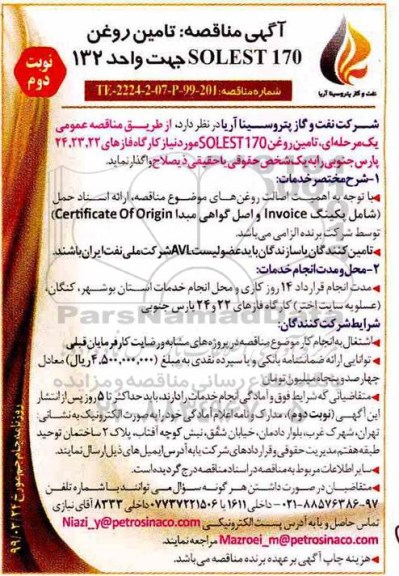 آگهی مناقصه: تامین روغن
SOLEST 170 جهت واحد ۱۳۲
نوبت دوم
نفت و گاز پتروسینا آریا
شماره مناقصه: TE-2224-2-07-P-99-201
شرکت نفت و گاز پتروسینا آریا در نظر دارد، از طریق مناقصه عمومی
یک مرحله‌ای، تامین روغن SOLEST 170 مورد نیاز کارگاه فازهای ۲۴،۲۳،۲۲
پارس جنوبی را به یک شخص حقوقی یا حقیقی ذیصلاح واگذار نماید.
۱-شرح مختصر خدمات:
با توجه به اهمیت اصالت روغن‌های موضوع مناقصه، ارائه اسناد حمل
(شامل پکینگ Invoice و اصل گواهی مبدا Certificate Of Origin)
توسط شرکت برنده الزامی می‌باشد.
تامین کنندگان یا سازندگان باید عضو لیست AVL شرکت ملی نفت ایران باشند.
۲-محل و مدت انجام خدمات:
مدت انجام قرارداد ۱۴ روز کاری و محل انجام خدمات استان بوشهر، کنگان،
(عسلویه سایت اختر) کارگاه فازهای ۲۲ و ۲۴ پارس جنوبی
شرایط شرکت کنندگان:
اشتغال به انجام کار موضوع مناقصه در پروژه‌های مشابه و رضایت کارفرمایان قبلی
توانایی ارائه ضمانتنامه بانکی و یا سپرده نقدی به مبلغ (۴,۵۰۰,۰۰۰,۰۰۰ ریال) معادل
چهارصد و پنجاه میلیون تومان
متقاضیانی که شرایط فوق و آمادگی انجام خدمات را دارند، باید حداکثر تا ۵ روز پس از انتشار
این آگهی (نوبت دوم)، مدارک و نامه اعلام آمادگی خود را به صورت الکترونیک به نشانی:
تهران، شهرک غرب، بلوار دادمان، خیابان شفق، نبش کوچه آفتاب، پلاک ۳- ساختمان توحید
طبقه هفتم مدیریت حقوقی و قراردادهای شرکت یا به آدرس ایمیل‌های ذیل ارسال نمایند.
سایر اطلاعات مربوط به مناقصه در اسناد مناقصه درج گردیده است.
متقاضیان در صورت داشتن هر گونه سؤال می توانند با شماره تلفن
۰۲۱-۸۸۵۷۶۳۸۶-۹۷ داخلی ۱۶۱۱ یا ۰۷۷۳۷۲۲۱۵۰۶ داخلی ۸۲۳۳ آقای نیازی
تماس حاصل و یا به آدرس پست الکترونیکی Niazi_y@petrosinaco.com
Mazroei_m@petrosinaco.com مراجعه نمایند.
هزینه چاپ آگهی بر عهده برنده مناقصه می‌باشد.
روزنامه جام جم مورخ ۹۹/۰۳/۲۴
ParsNamadData